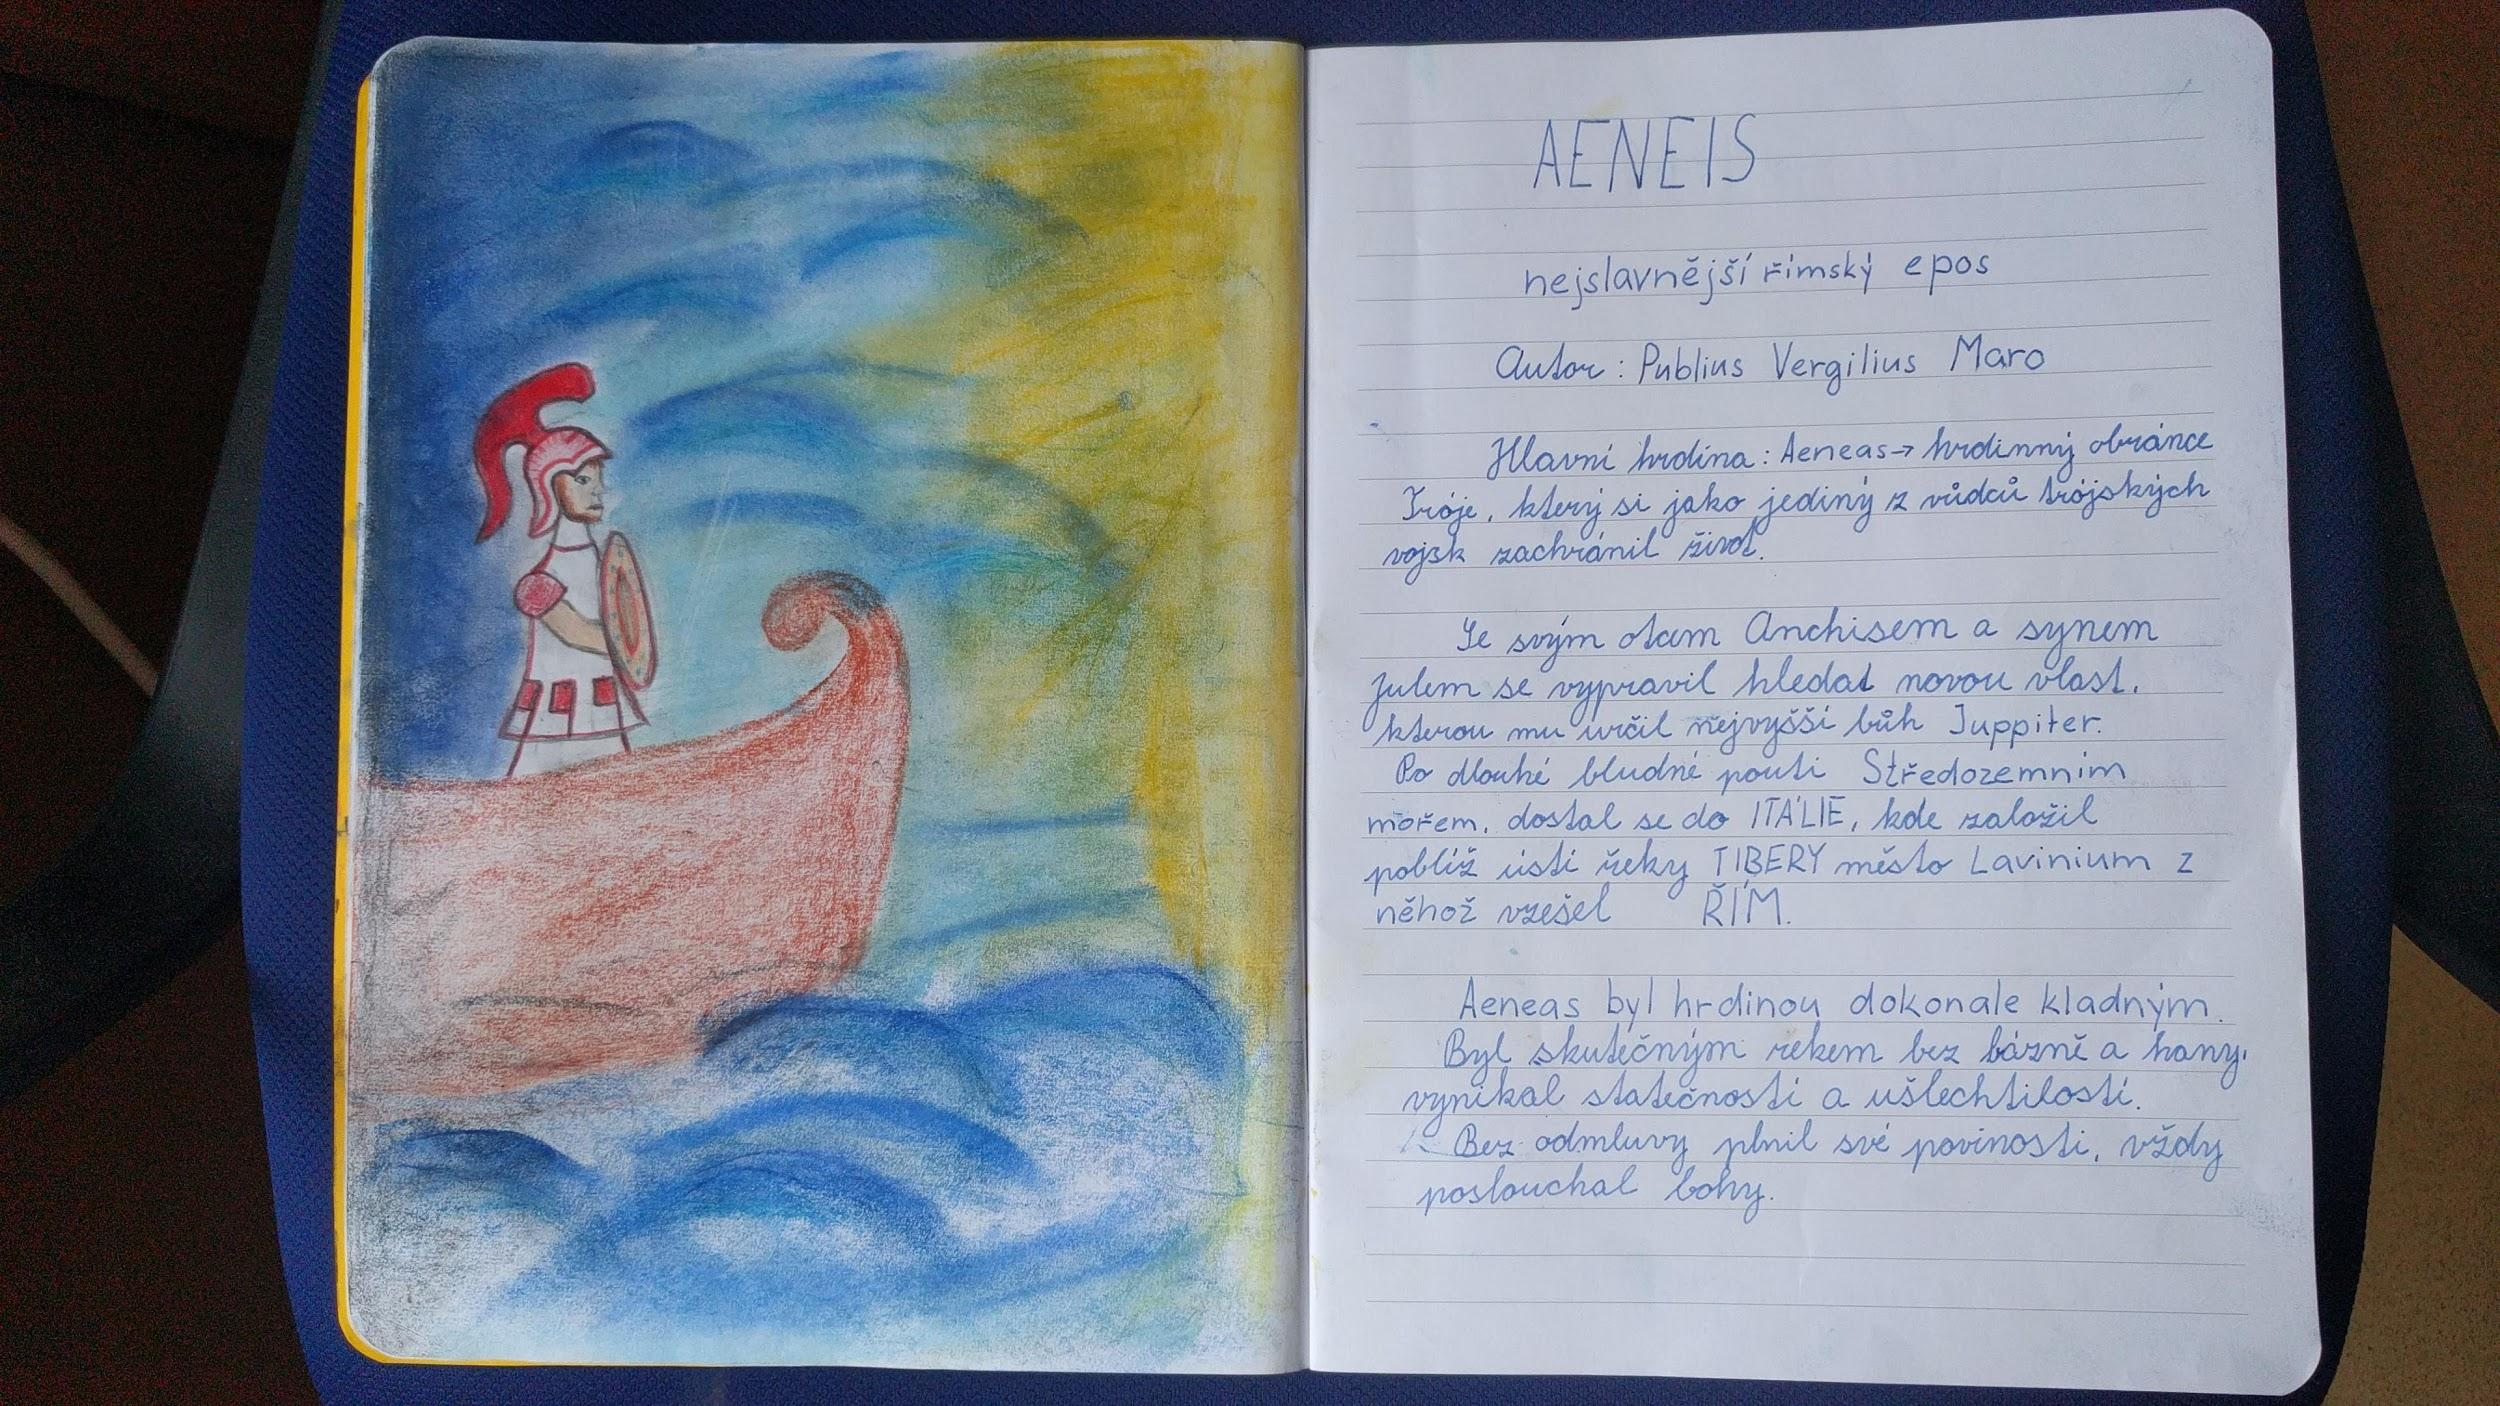 AENEIS
nejslavnější římský epos
Autor: Publius Vergilius Maro
Hlavní hrdina: Aeneas → hrdinný obránce
Tróje, který si jako jediný z vůdců trójských
vojsk zachránil život.
Se svým otcem Anchisem a synem
Julem se vypravil hledat novou vlast,
kterou mu určil nejvyšší bůh Juppiter.
Po dlouhé bludné pouti Středozemním
mořem, dostal se do ITÁLIE, kde založil
poblíž ústí řeky TIBERY město Lavinium z
něhož vzešel ŘÍM.
Aeneas byl hrdinou dokonale kladným.
Byl skutečným rekem bez bázně a hany,
vynikal statečností a ušlechtilostí.
Bez odmluvy plnil své povinosti, vždy
poslouchal bohy.